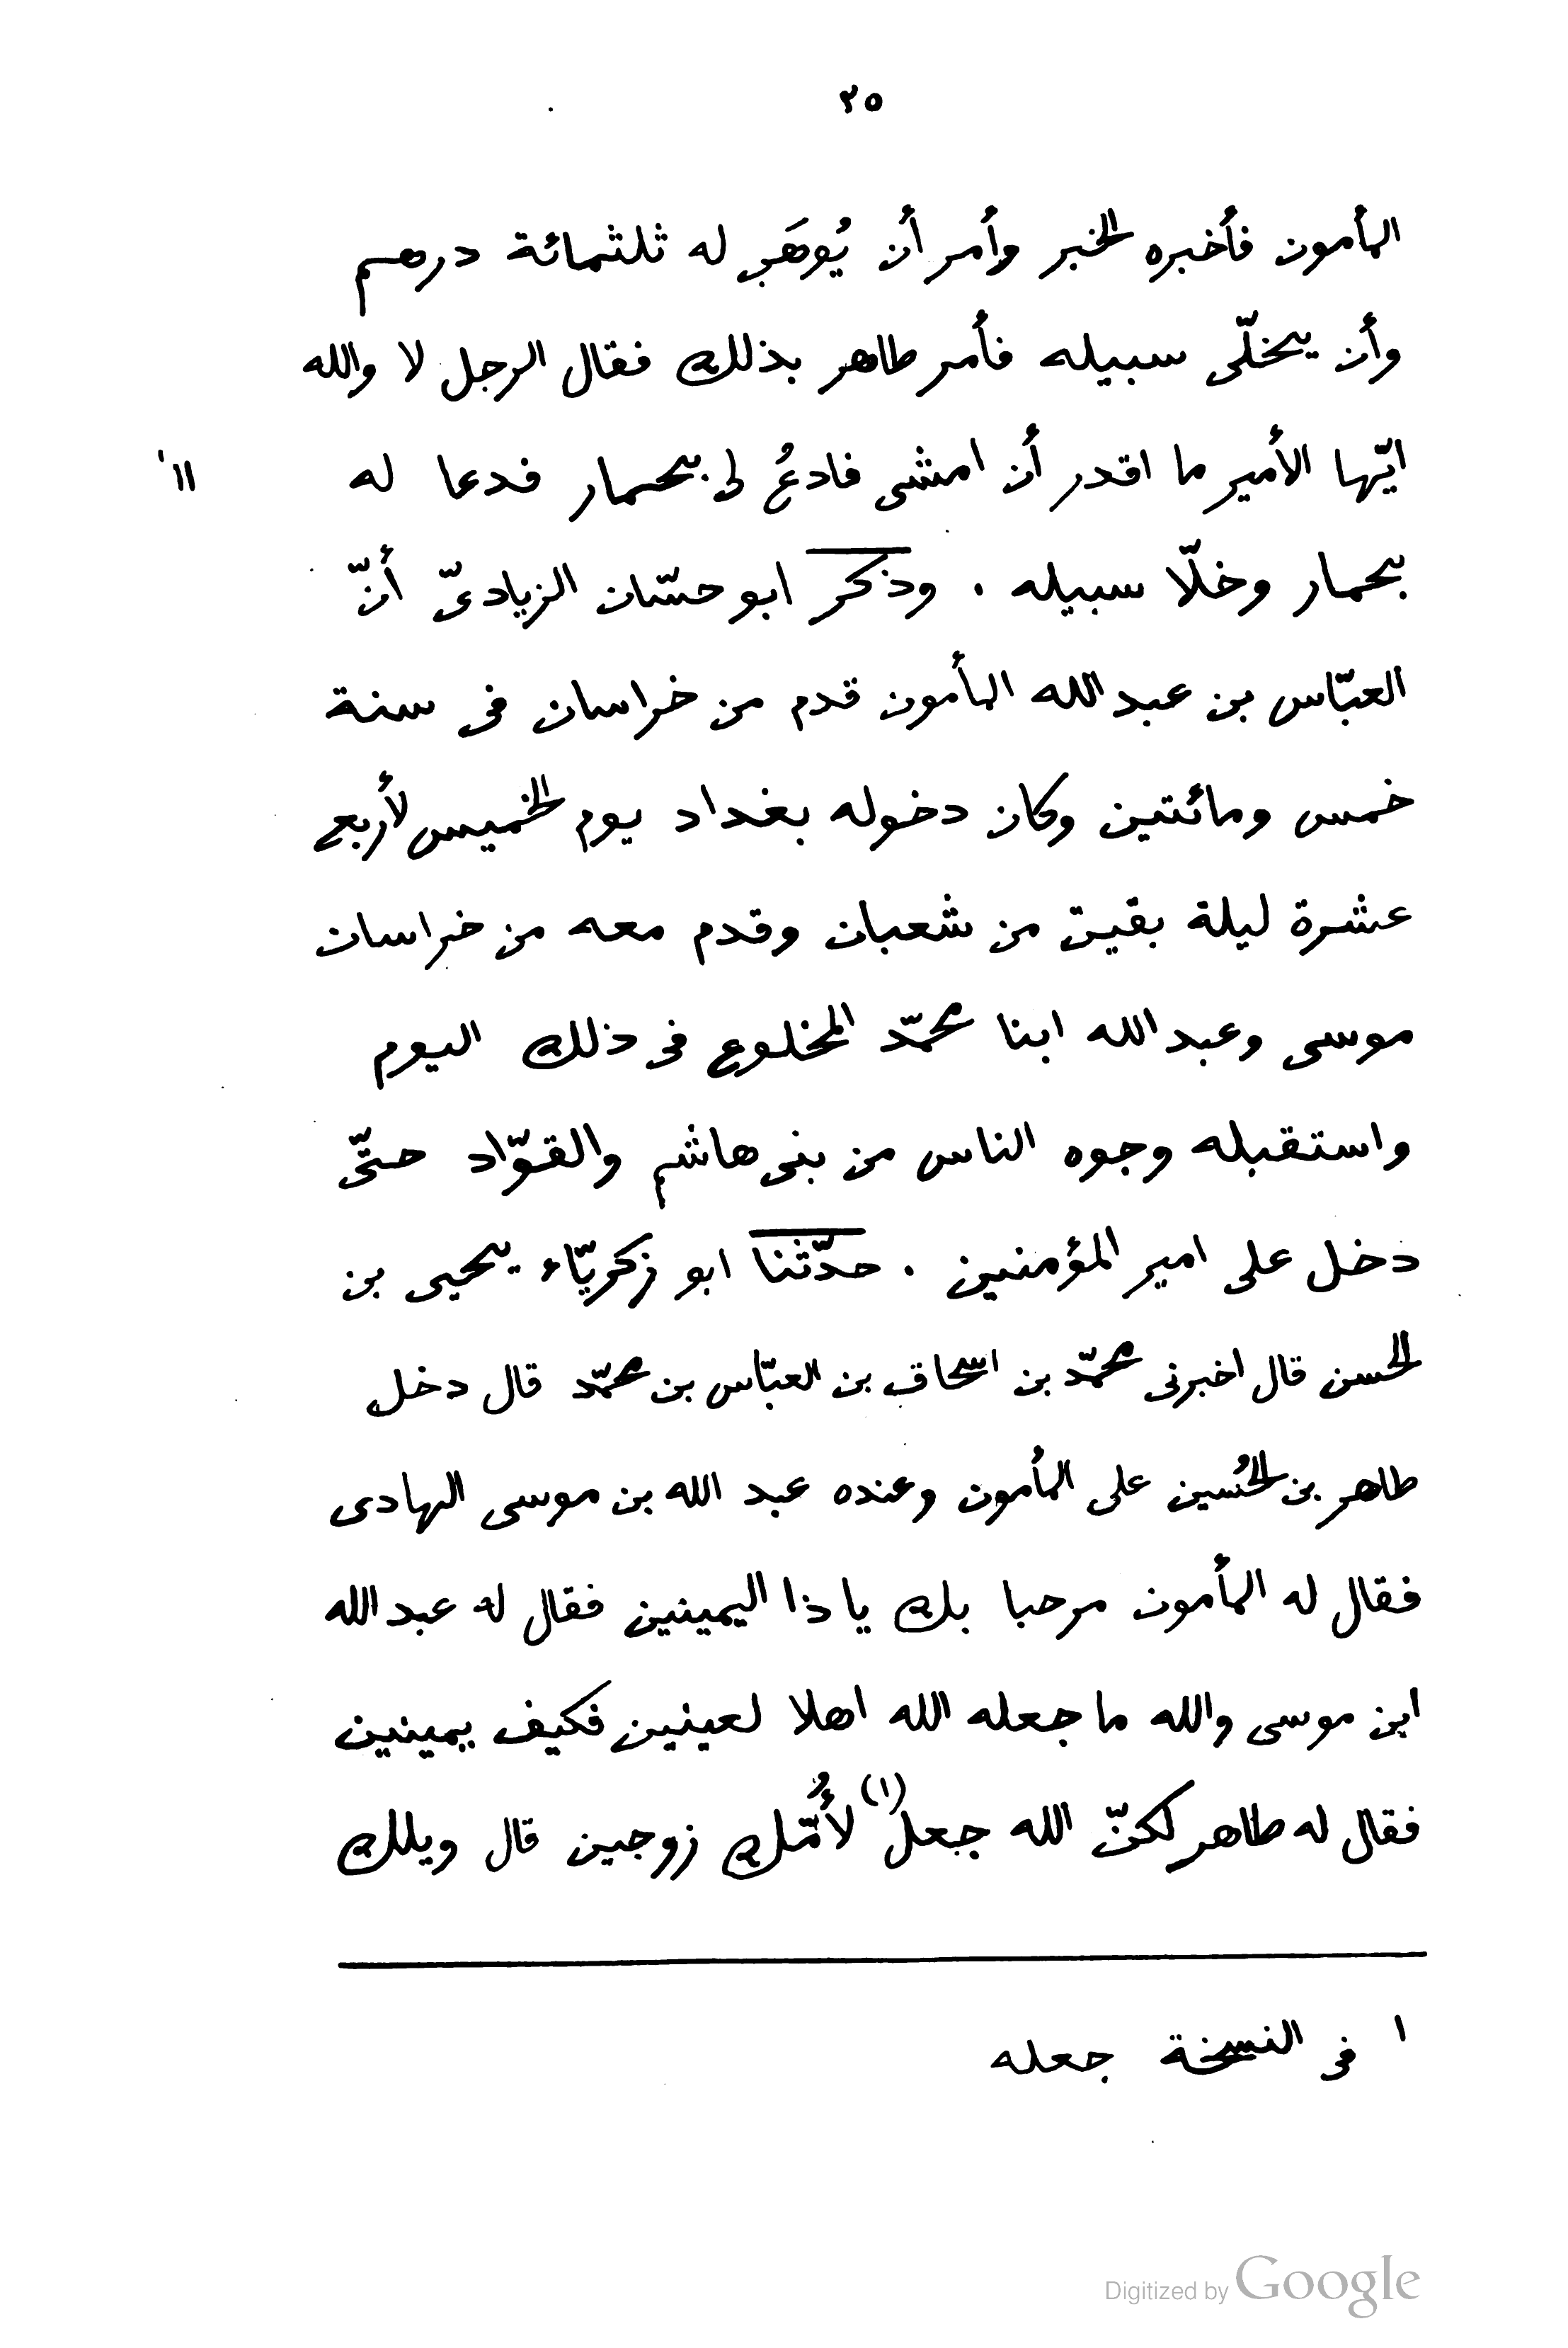 ٢٥
المأمون فأخبره الخبر وأمر أن يُوهَب له ثلثمائة درهم
وأن يخلّى سبيله فأمر طاهر بذلك فقال الرجل لا والله
ايّها الأمير ما اقدر أن امشى فادعُ لى بحمار فدعا له
١١'
بحمار وخلّا سبيله . وذكر ابو حسّان الزيادىّ أنّ
العبّاس بن عبد الله المأمون قدم من خراسان فى سنة
خمس ومائتين وكان دخوله بغداد يوم الخميس لأربع
عشرة ليلة بقين من شعبان وقدم معه من خراسان
موسى وعبد الله ابنا محمّد المخلوع فى ذلك اليوم
واستقبله وجوه الناس من بنى هاشم والقوّاد حتّى
دخل على امير المؤمنين . حدّثنا ابو زكريّاء يحيى بن
الحسن قال اخبرنى محمّد بن اسحاق بن العبّاس بن محمّد قال دخل
طاهر بن الحُسين على المأمون وعنده عبد الله بن موسى الهادى
فقال له المأمون مرحبا بك يا ذا اليمينين فقال له عبد الله
ابن موسى والله ما جعله الله اهلا لعينين فكيف يمينين
فقال له طاهر لكنّ الله جعل(١) لأُمّك زوجين قال ويلك
١ فى النسخة جعله
Digitized by Google